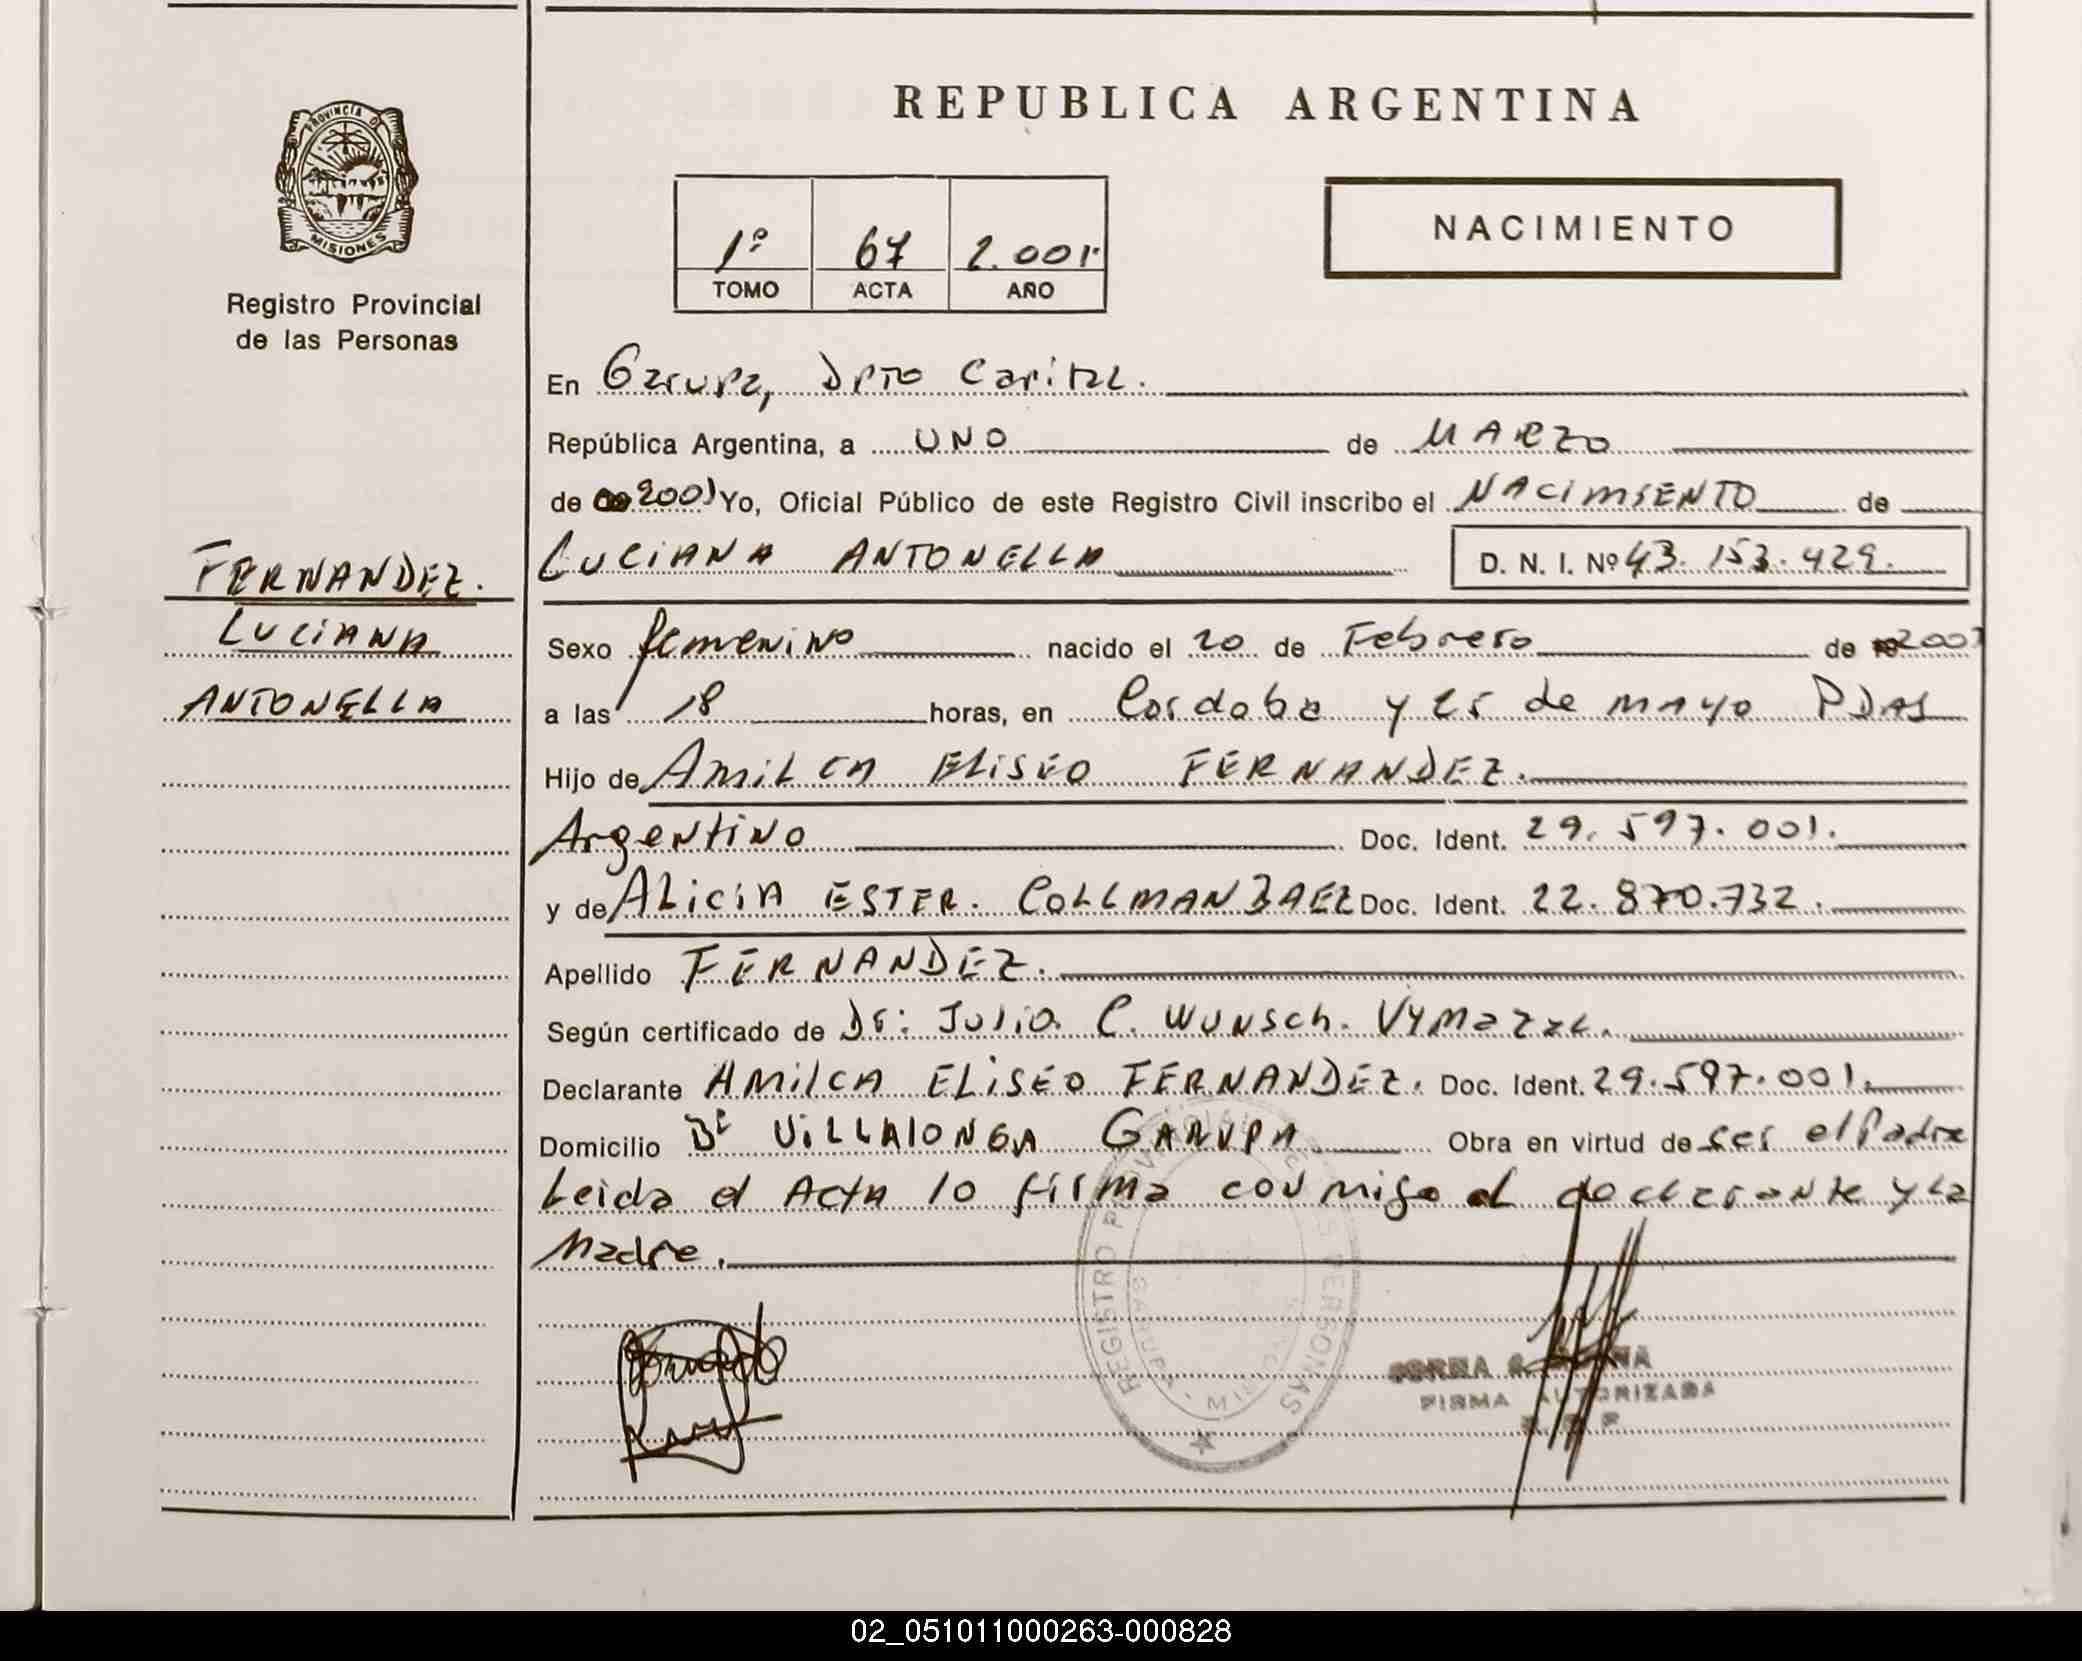 REPUBLICA ARGENTINA
PROVINCIA D
MISIONES
Registro Provincial
de las Personas
1º 67 2.001
TOMO ACTA AÑO
NACIMIENTO
En Garupa, Dpto Capital.
República Argentina, a UNO de MARZO
de 2001 Yo, Oficial Público de este Registro Civil inscribo el NACIMIENTO de
FERNANDEZ.
LUCIANA
ANTONELLA
LUCIANA ANTONELLA D. N. I. Nº 43.153.429.
Sexo femenino nacido el 20 de Febrero de 2001
a las 18 horas, en Cordoba y 25 de mayo PDAS
Hijo de AMILCA ELISEO FERNANDEZ.
Argentino Doc. Ident. 29.597.001.
y de ALICIA ESTER. COLLMAN BAEZ Doc. Ident. 22.870.732.
Apellido FERNANDEZ.
Según certificado de Dr: Julio C. Wunsch. Vymazal.
Declarante AMILCA ELISEO FERNANDEZ. Doc. Ident. 29.597.001.
Domicilio Bº VILLALONGA GARUPA Obra en virtud de ser el Padre
Leida el Acta lo firma conmigo el declarante y la
Madre.
REGISTRO PERSONAS
FIRMA AUTORIZADA
02_051011000263-000828